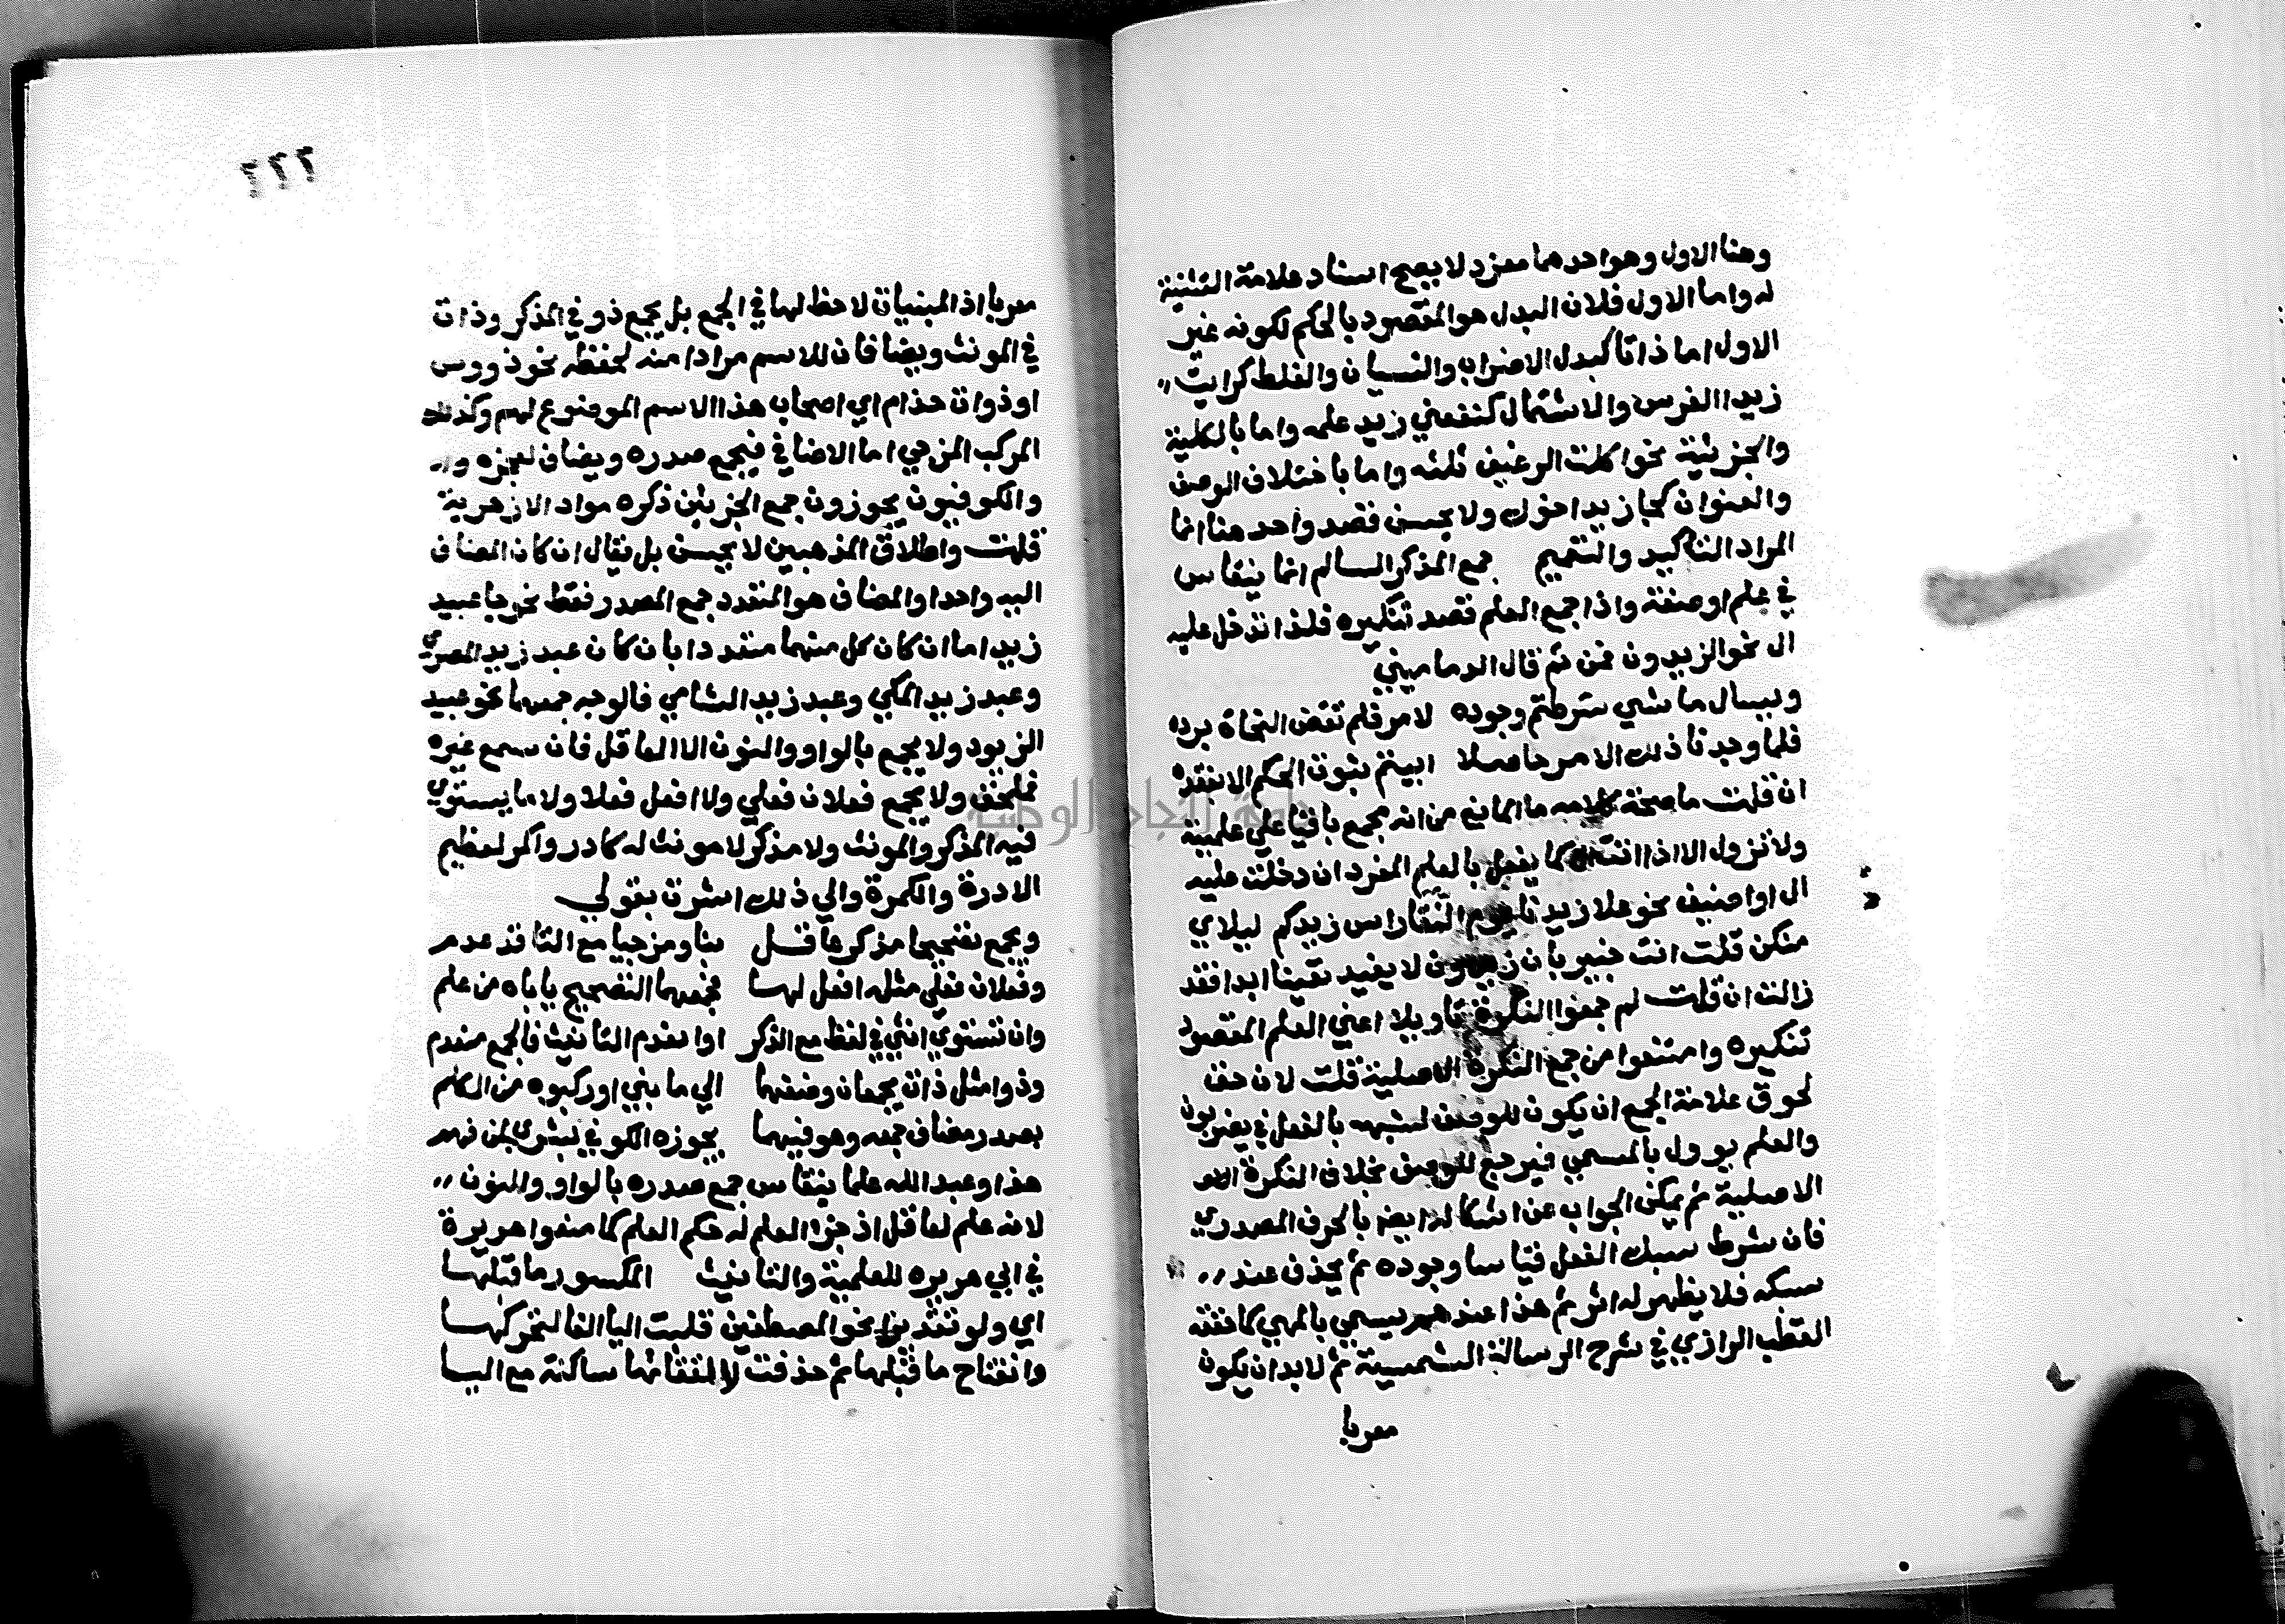 وهنا الاول وهو احدهما مفرد لا يصح اسناد علامة التثنية
له واما الاول فلان البدل هو المقصود بالحكم لكونه غير
الاول اما ذاتا كبدل الاضراب والنسيان والغلط كرايت
زيدا الفرس والاشتمال كنفعني زيد علمه واما بالكلية
والجزئية نحو اكلت الرغيف ثلثه واما باختلاف الوصف
والعنوان كجا زيد اخوك ولا يحسن قصد واحد هنا انما
المراد التاكيد والتتميم جمع المذكر السالم انما ينقاس
في علم او صفة واذا جمع العلم قصد تنكيره فلذا تدخل عليه
ال نحو الزيدون فمن ثم قال الدماميني
ويسال ما شي شرطتم وجوده لامر فلم تقض النحاة برده
فلما وجدنا ذلك الامر حاصلا ابيتم ثبوت الحكم الا بفقده
ان قلت ما صحة كلامه ما المانع من انه يجمع باقيا علي علمية
ولا تزول الا اذا كما يفعل بالعلم المفرد ان دخلت عليه
ال او اضيف نحو علا زيدنا يوم النقا راس زيدكم ليلاي
منكن قلت انت خبير بان زيدون لا يفيد تعينا ابدا فقد
زالت ان قلت لم جمعوا النكرة تاويلا اعني العلم المقصود
تنكيره وامتنعوا من جمع النكرة الاصلية قلت لان حق
لحوق علامة الجمع ان يكون للوصف لشبهه بالفعل في يضربون
والعلم يوول بالمسمي فيرجع للوصف بخلاف النكرة
الاصلية ثم يمكن الجواب عن اشكاله ايضا بالحرف المصدري
فان شرط سبك الفعل قياسا وجوده ثم يحذف عند
سبكه فلا يظهر له اثر ثم هذا عندهم يسمي بالمهي كما نقله
القطب الرازي في شرح الرسالة الشمسية ثم لا بد ان يكون
معربا
٢٢٢
معربا اذ المبنيات لا حظ لها في الجمع بل يجمع ذو في المذكر وذات
في المونث ويضافان للاسم مرادا منه لفظه نحو ذووس
او ذوات حذام اي اصحاب هذا الاسم الموضوع لهم وكذلك
المركب المزجي اما الاضافي فيجمع صدره ويضاف لعجزه
والكوفيون يجوزون جمع الجزئين ذكره مواد الازهرية
قلت واطلاق المذهبين لا يحسن بل يقال ان كان المضاف
اليه واحدا والمضاف هو المتعدد جمع المصدر فقط نحو جا عبيد
زيد اما ان كان كل منهما متعددا بان كان عبد زيد المصري
وعبد زيد المكي وعبد زيد الشامي فالوجه جمعهما نحو عبيد
الزيود ولا يجمع بالواو والنون الا العاقل فان سمع غيره
فملحق ولا يجمع فعلان فعلي ولا افعل فعلا ولا ما يستوي
فيه المذكر والمونث ولا مذكر لا مونث له كادر واكمر لعظيم
الادرة والكمرة والي ذلك اشرت بقولي
ويجمع تصحيحا مذكر عاقل بنا ومزجيا مع التا قد عدم
وفعلان فعلي مثله افعل لهسا فجمعهما التصحيح ياباه من علم
وان تستوي انثي في لفظ مع الذكر او انعدم التانيث فالجمع منعدم
وذو مثل ذات يجمعان وضفهما الي ما بني او ركبوه من الكلم
بصدر مضاف جمعه وهو فيهما يجوزه الكوفي لبشري لمن فهم
هذا وعبد الله علما ينقاس جمع صدره بالواو والنون
لانه علم لعاقل اذ جزؤ العلم له حكم العلم كما منعوا هريرة
في ابي هريره للعلمية والتانيث المكسور ما قبلها
اي ولو تقديرا نحو المصطفين قلبت اليا الفا لتحركها
وانفتاح ما قبلها ثم حذفت لالتقائها ساكنة مع اليا
جامعة النجاح الوطنية